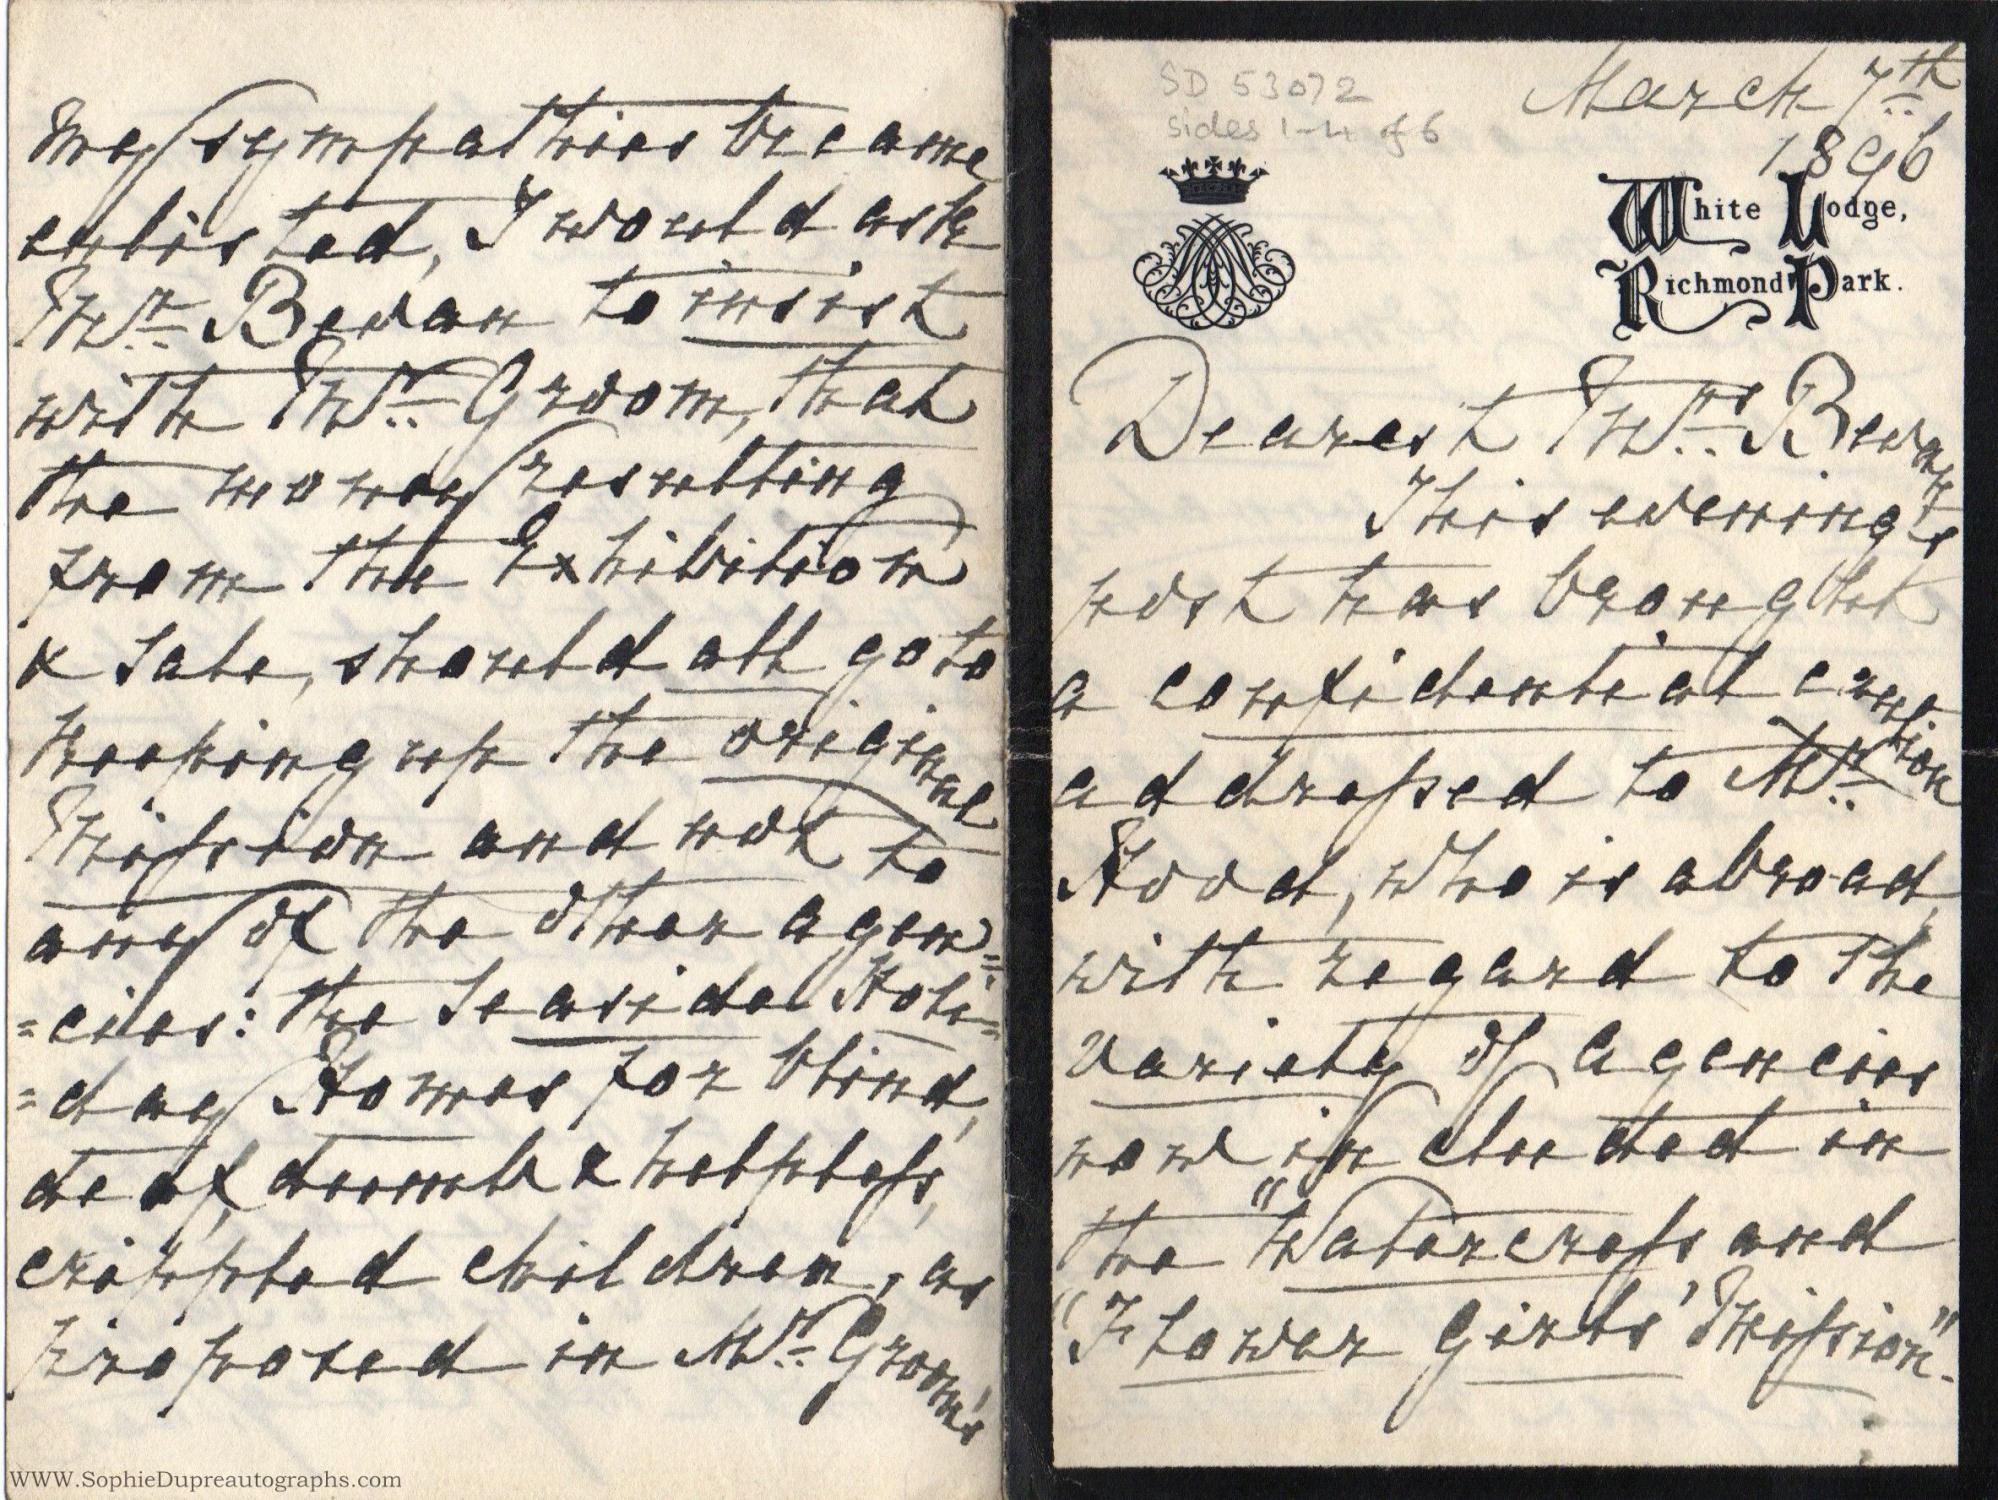 SD 53072
sides 1-4 of 6
March 7th
1896
White Lodge,
Richmond Park.
Dearest Mrs. Bevan
This evening's
post has brought
a confidential
addressed to Mr.
Hood, who is abroad,
with regard to the
variety of agencies
now included in
the "Watercress and
"Flower Girls' Mission".
my sympathies became
enlisted, I would ask
Mr. Bevan to insist
with Mr. Groom, that
the money resulting
from the Exhibition
& Sale, should all go to
keeping up the original
Mission and not to
any of the other agen=
=cies: the Seaside Holi=
=day Homes for blind,
deaf, dumb & helpless,
crippled children, as
proposed in Mr. Groom's
WWW.SophieDupreautographs.com